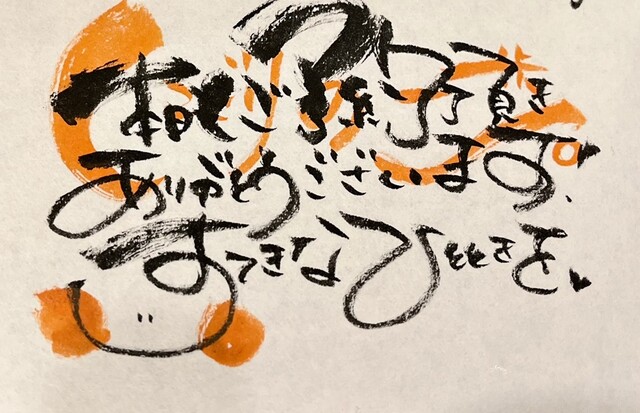 本日もご予約頂き
ありがとうございます、
すてきなひとときを♥